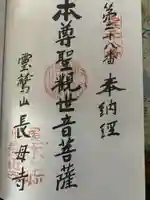 第二十八番 奉納経
本尊聖觀世音菩薩
靈鷲山 長母寺